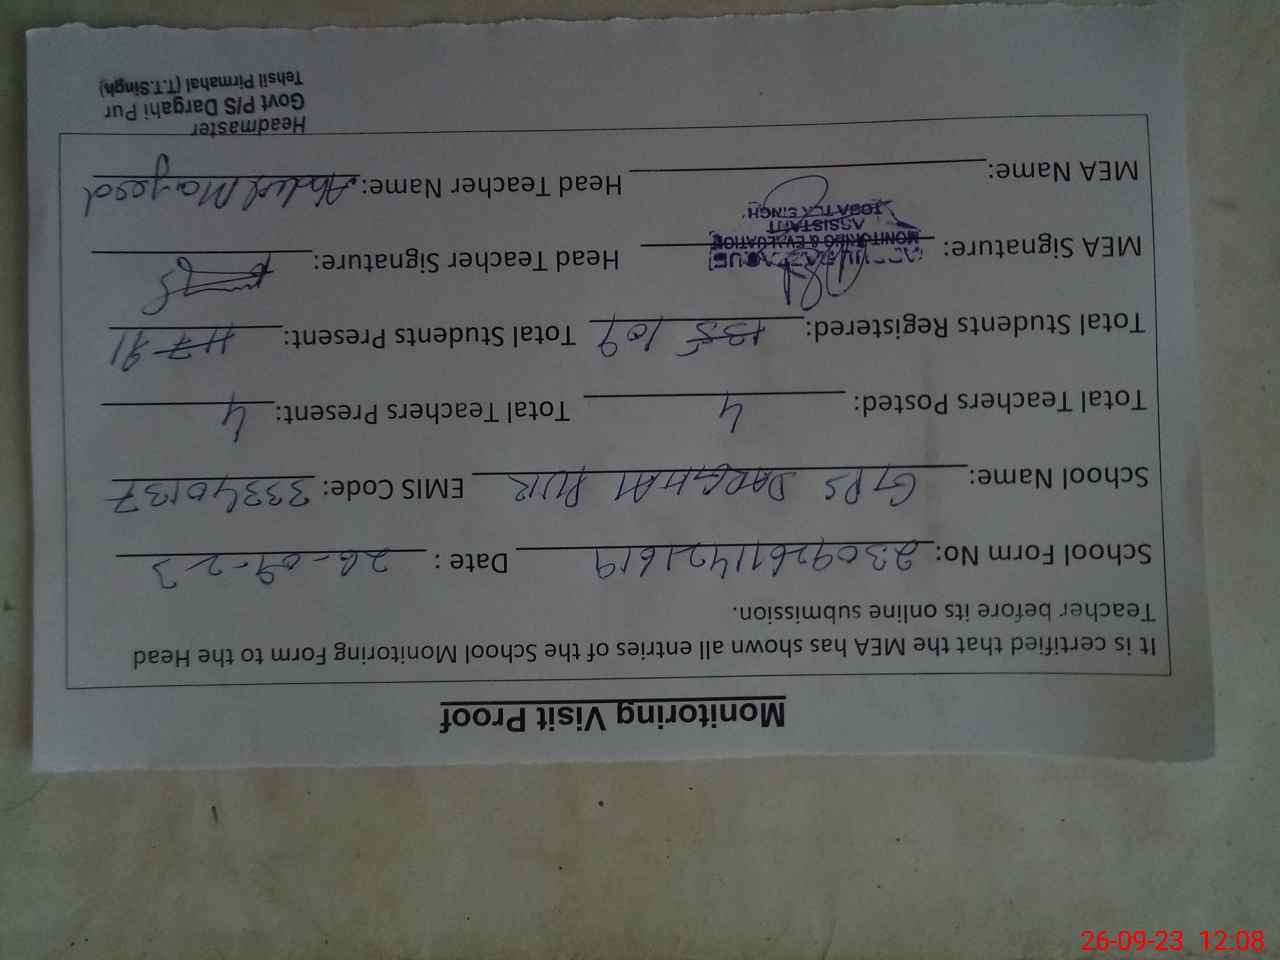 Monitoring Visit Proof
It is certified that the MEA has shown all entries of the School Monitoring Form to the Head
Teacher before its online submission.
School Form No: 23092611421619 Date : 26-09-23
School Name: GPS DARGHAI PUR EMIS Code: 33340137
Total Teachers Posted: 4 Total Teachers Present: 4
Total Students Registered: 135 109 Total Students Present: 117 91
MEA Signature: Head Teacher Signature:
MONITORING & EVALUATION
ASSISTANT
TOBA TEK SINGH
MEA Name: Head Teacher Name: Abdul Majeed
Headmaster
Govt P/S Dargahi Pur
Tehsil Pirmahal (T.T.Singh)
26-09-23 12:08